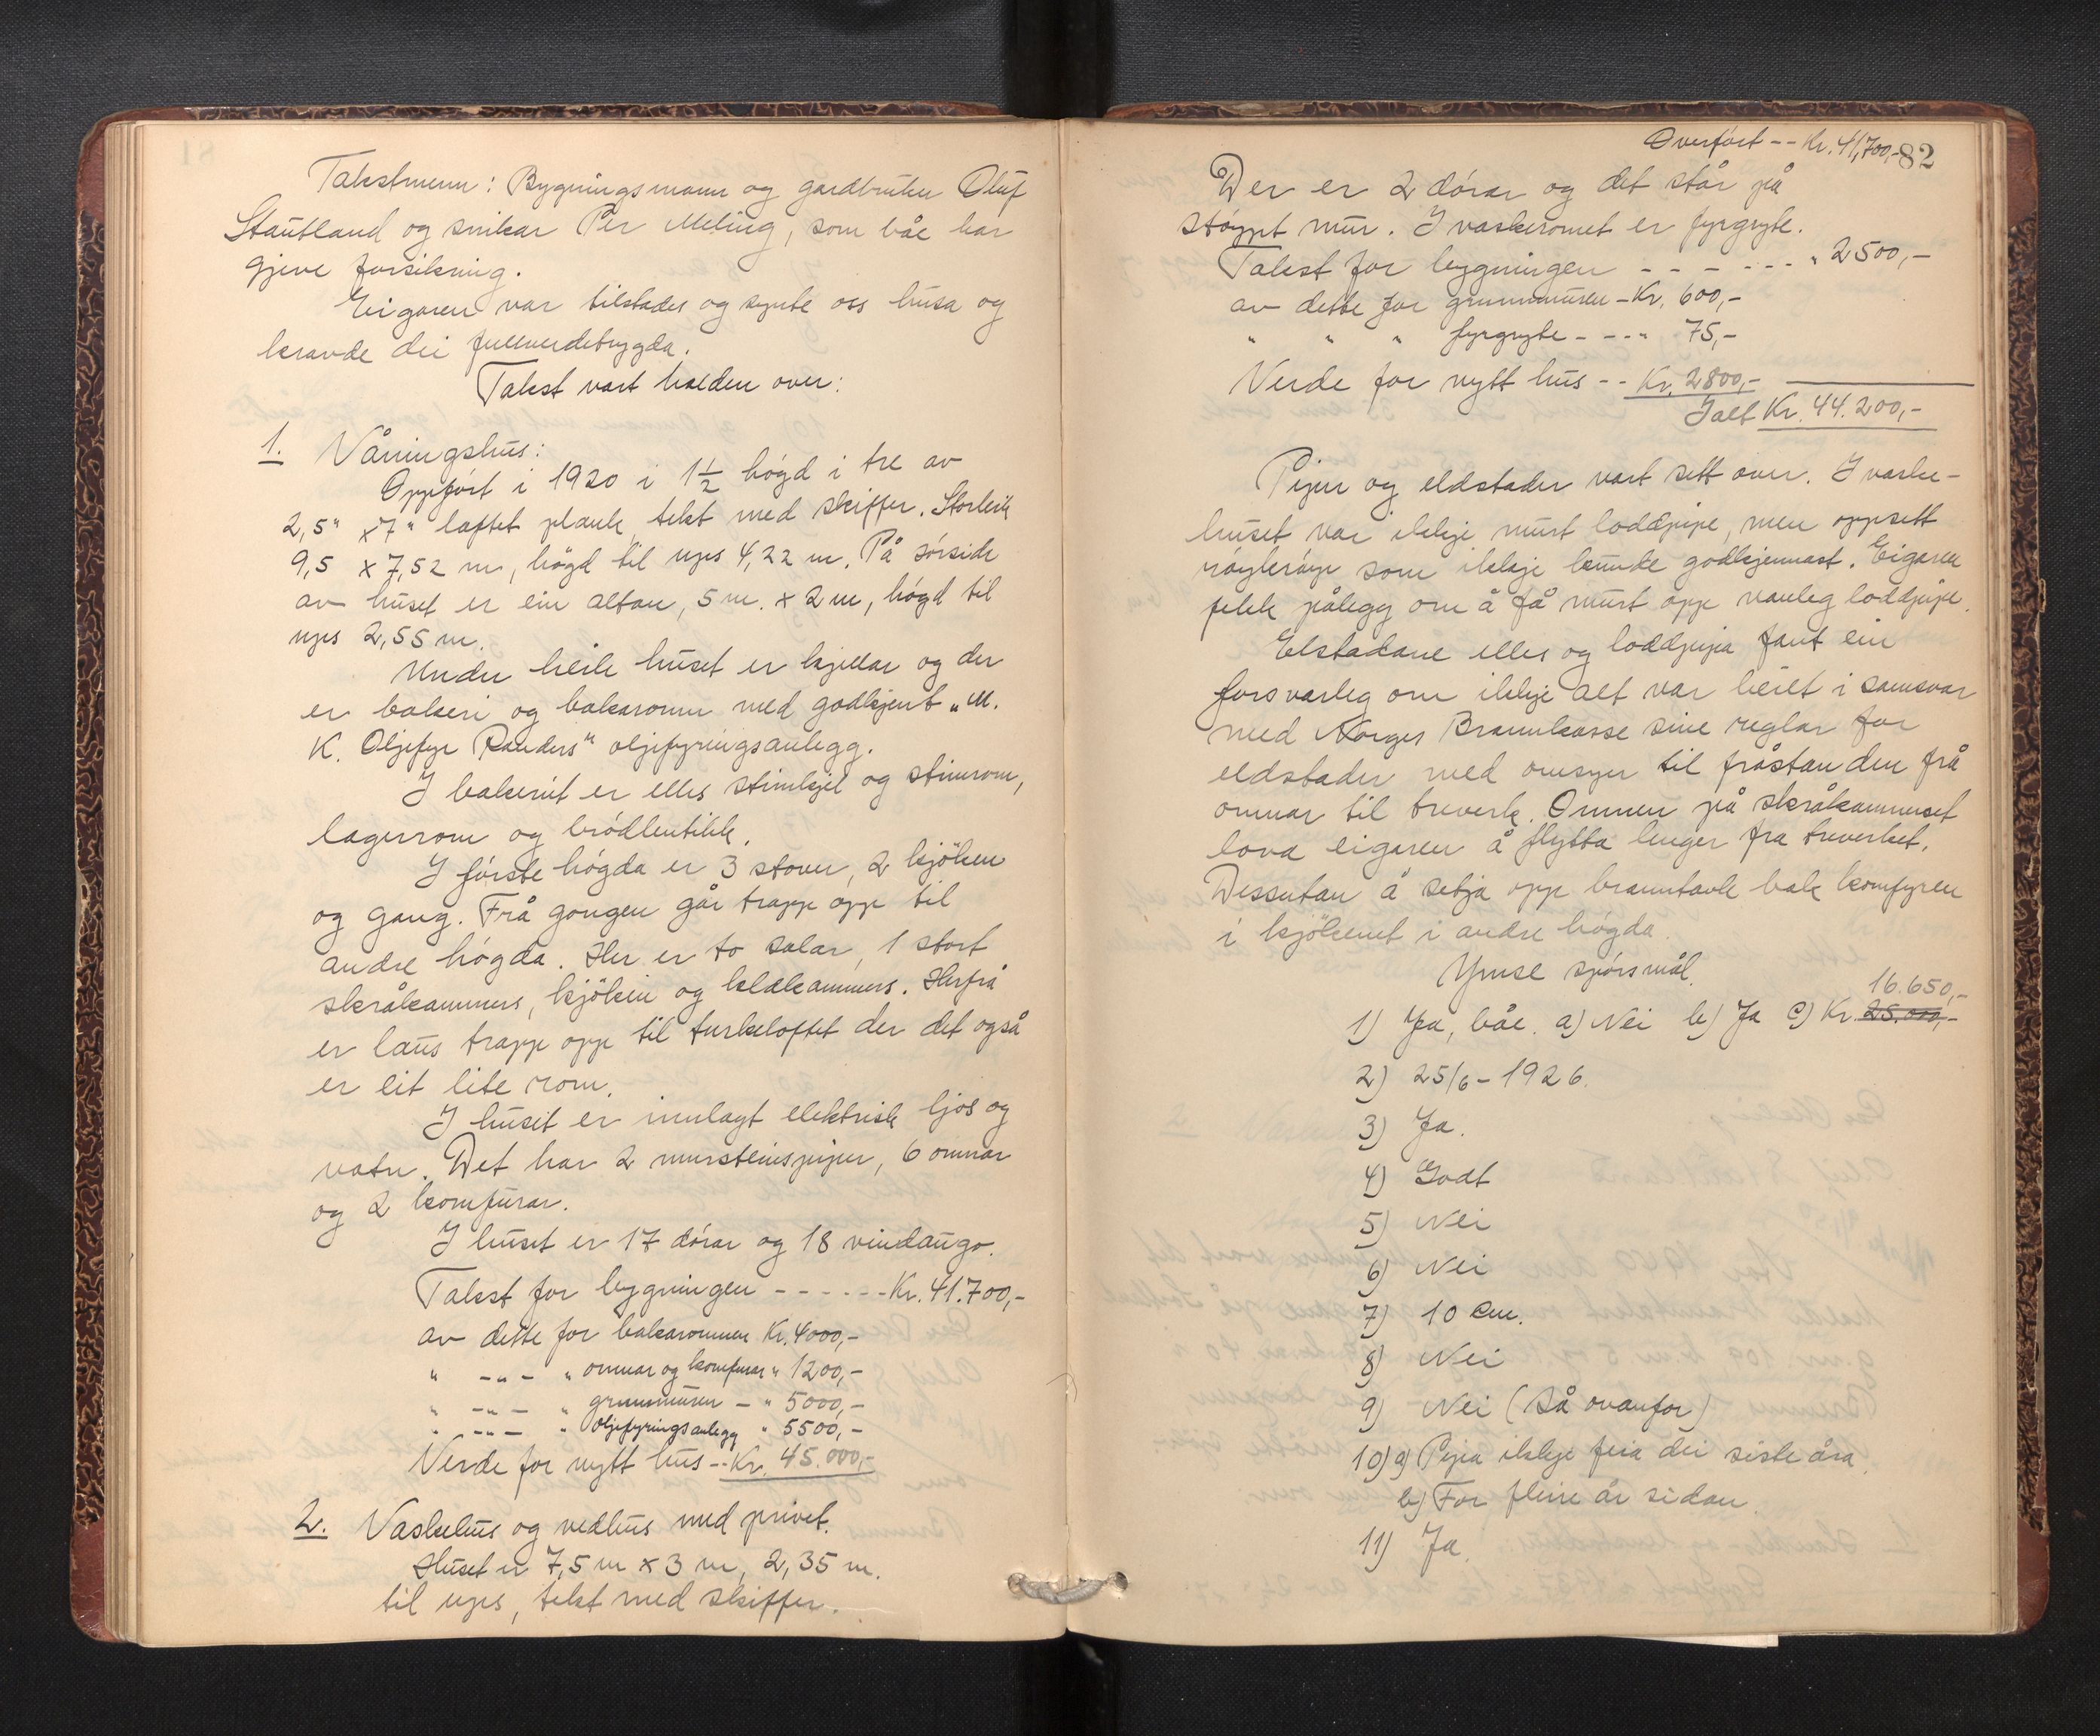 Takstmenn: Bygningsmann og gardbruker Oluf
Stautland og snikar Per Meling, som båe har
gjeve forsikring.
Eigaren var tilstades og synte oss husa og
kravde dei fullverdetrygda.
Takst vart halden over:
1. Våningshus:
Oppført i 1920 i 1½ høgd i tre av
2,5" x 7" laftet plank, tekt med skiffer. Storleik
9,5 x 7,52 m, høgd til ups 4,22 m. På sørside
av huset er ein altan, 5 m. x 2 m, høgd til
ups 2,55 m.
Under heile huset er kjellar og der
er bakeri og bakaromn med godkjent „M.
K. Oljefyr Randers" oljefyringsanlegg.
I bakeriet er elles stimkjel og stimrom,
lagerrom og brødbutikk.
I første høgda er 3 stover, 2 kjöken
og gang. Frå gongen går trapp opp til
andre høgda. Her er to salar, 1 stort
skråkammers, kjöken og klækammers. Herfrå
er laus trapp opp til turkeloftet der det også
er eit lite rom.
I huset er innlagt elektrisk ljos og
vatn. Det har 2 mursteinspiper, 6 omnar
og 2 komfurar.
I huset er 17 dørar og 18 vindaugo.
Takst for bygningen - - - - - - Kr. 41.700,-
av dette for bakaromnen Kr. 4000,-
" -"- " omnar og komfurar " 1200,-
" -"- " grunnmuren - " 5000,-
" -"- " oljefyringsanlegg " 5500,-
Verde for nytt hus -- Kr. 45.000,-
2. Vaskehus og vedhus med privet.
Huset er 7,5 m x 3 m, 2,35 m.
til ups, tekt med skiffer.
Overført -- Kr. 41,700,-
82
Der er 2 dørar og det står på
støypt mur. I vaskeromet er fyrgryte.
Takst for bygningen - - - - - - " 2500,-
av dette for grunnmuren - Kr. 600,-
" " " fyrgryte - - - " 75,-
Verde for nytt hus -- Kr. 2800,-
Ialt Kr. 44.200,-
Piper og eldstader vart sett over. I vaske-
huset var ikkje murt loddpipe, men oppsett
røykrøyr som ikkje kunde godkjennast. Eigaren
fekk pålegg om å få murt opp vanleg loddpipe.
Elstadane elles og loddpipa fant ein
forsvarleg om ikkje alt var heilt i samsvar
med Norges Brannkasse sine reglar for
eldstader med omsyn til fråstanden frå
omnar til treverk. Omnen på skråkammerset
lova eigaren å flytta lenger fra treverket.
Dessutan å setja opp branntavle bak komfyren
i kjökenet i andre høgda.
Ymse spørsmål.
16.650,-
1) Ja, båe. a) Nei b) Ja c) Kr. 25.000,-
2) 25/6 - 1926.
3) Ja.
4) Godt
5) Nei
6) Nei
7) 10 cm.
8) Nei
9) Nei (Så ovanfor)
10) a) Pipa ikkje feia dei siste åra.
b) For fleire år sidan.
11) Ja.